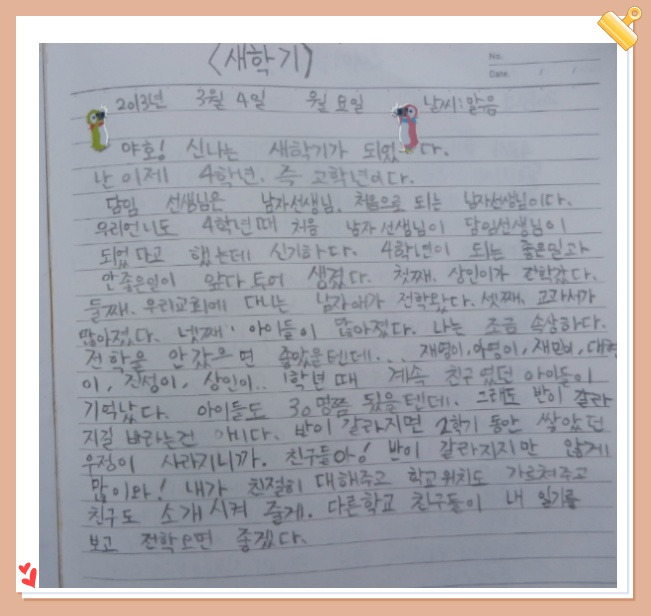 <새학기>
No.
Date. / /
2013년 3월 4일 월요일 날씨:맑음
야호! 신나는 새학기가 되었다.
난 이제 4학년. 즉 고학년이다.
담임 선생님은 남자선생님. 처음으로 되는 남자선생님이다.
우리언니도 4학년때 처음 남자선생님이 담임선생님이
되었다고 했는데 신기하다. 4학년이 되는 좋은일과
안좋은일이 앞다투어 생겼다. 첫째, 상인이가 전학갔다.
둘째, 우리교회에 다니는 남자애가 전학왔다. 셋째, 교과서가
많아졌다. 넷째, 아이들이 많아졌다. 나는 조금 속상하다.
전학을 안갔으면 좋았을텐데... 재영이, 아영이, 재민이, 대현
이, 진성이, 상인이.. 1학년때 계속 친구였던 아이들이
기억났다. 아이들도 30명쯤 됐을텐데. 그래도 반이 갈라
지길 바라는건 아니다. 반이 갈라지면 2학기 동안 쌓았던
우정이 사라지니까. 친구들아! 반이 갈라지지만 않게
많이와! 내가 친절히 대해주고 학교위치도 가르쳐주고
친구도 소개시켜 줄게. 다른학교 친구들이 내 일기를
보고 전학오면 좋겠다.